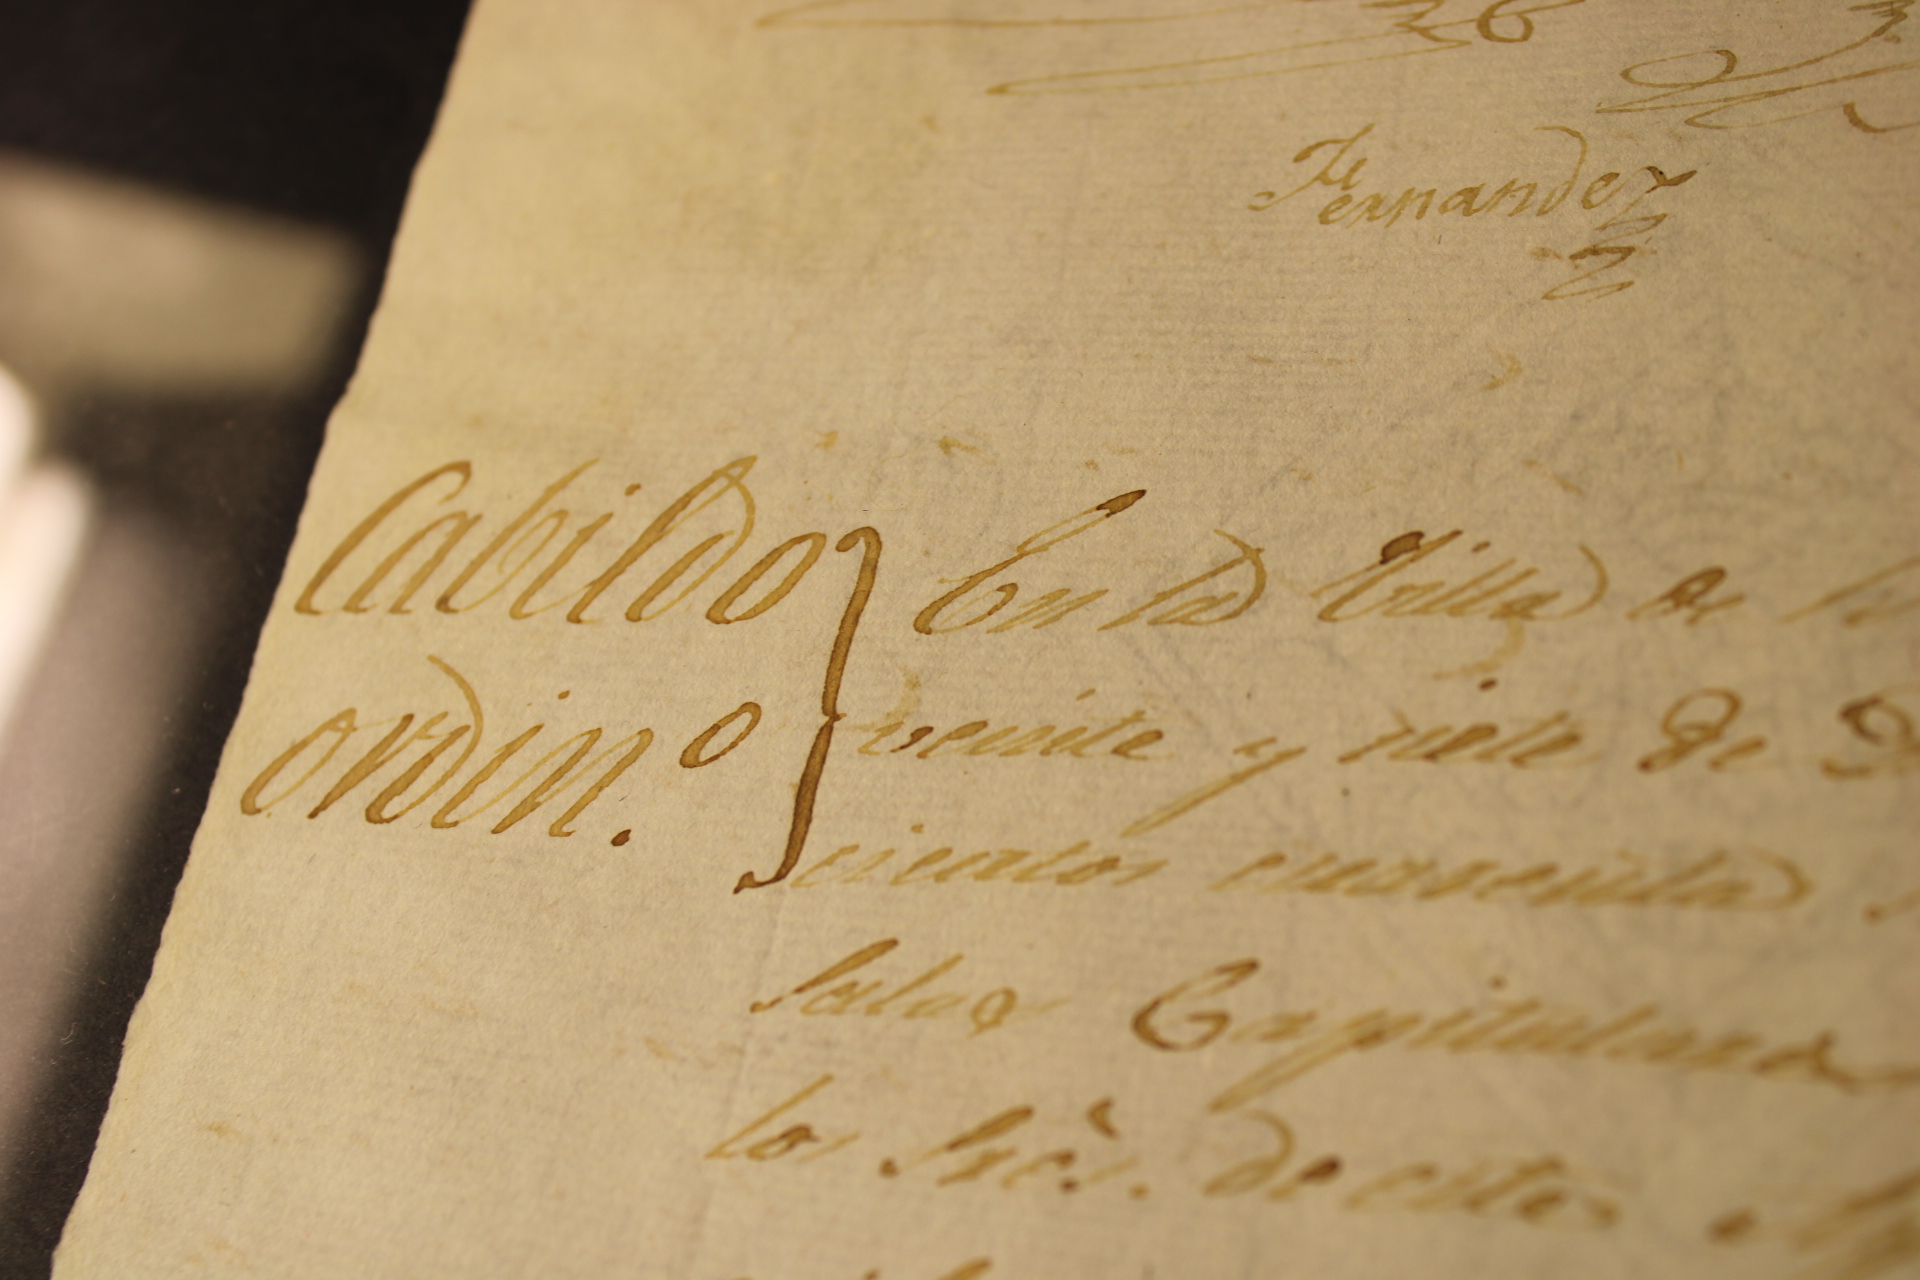 Fernandez
Cabildo ordin.º
En la Villa de
veinte y siete de
cientos cuarenta
Salas Capitulares
los Sres. de este